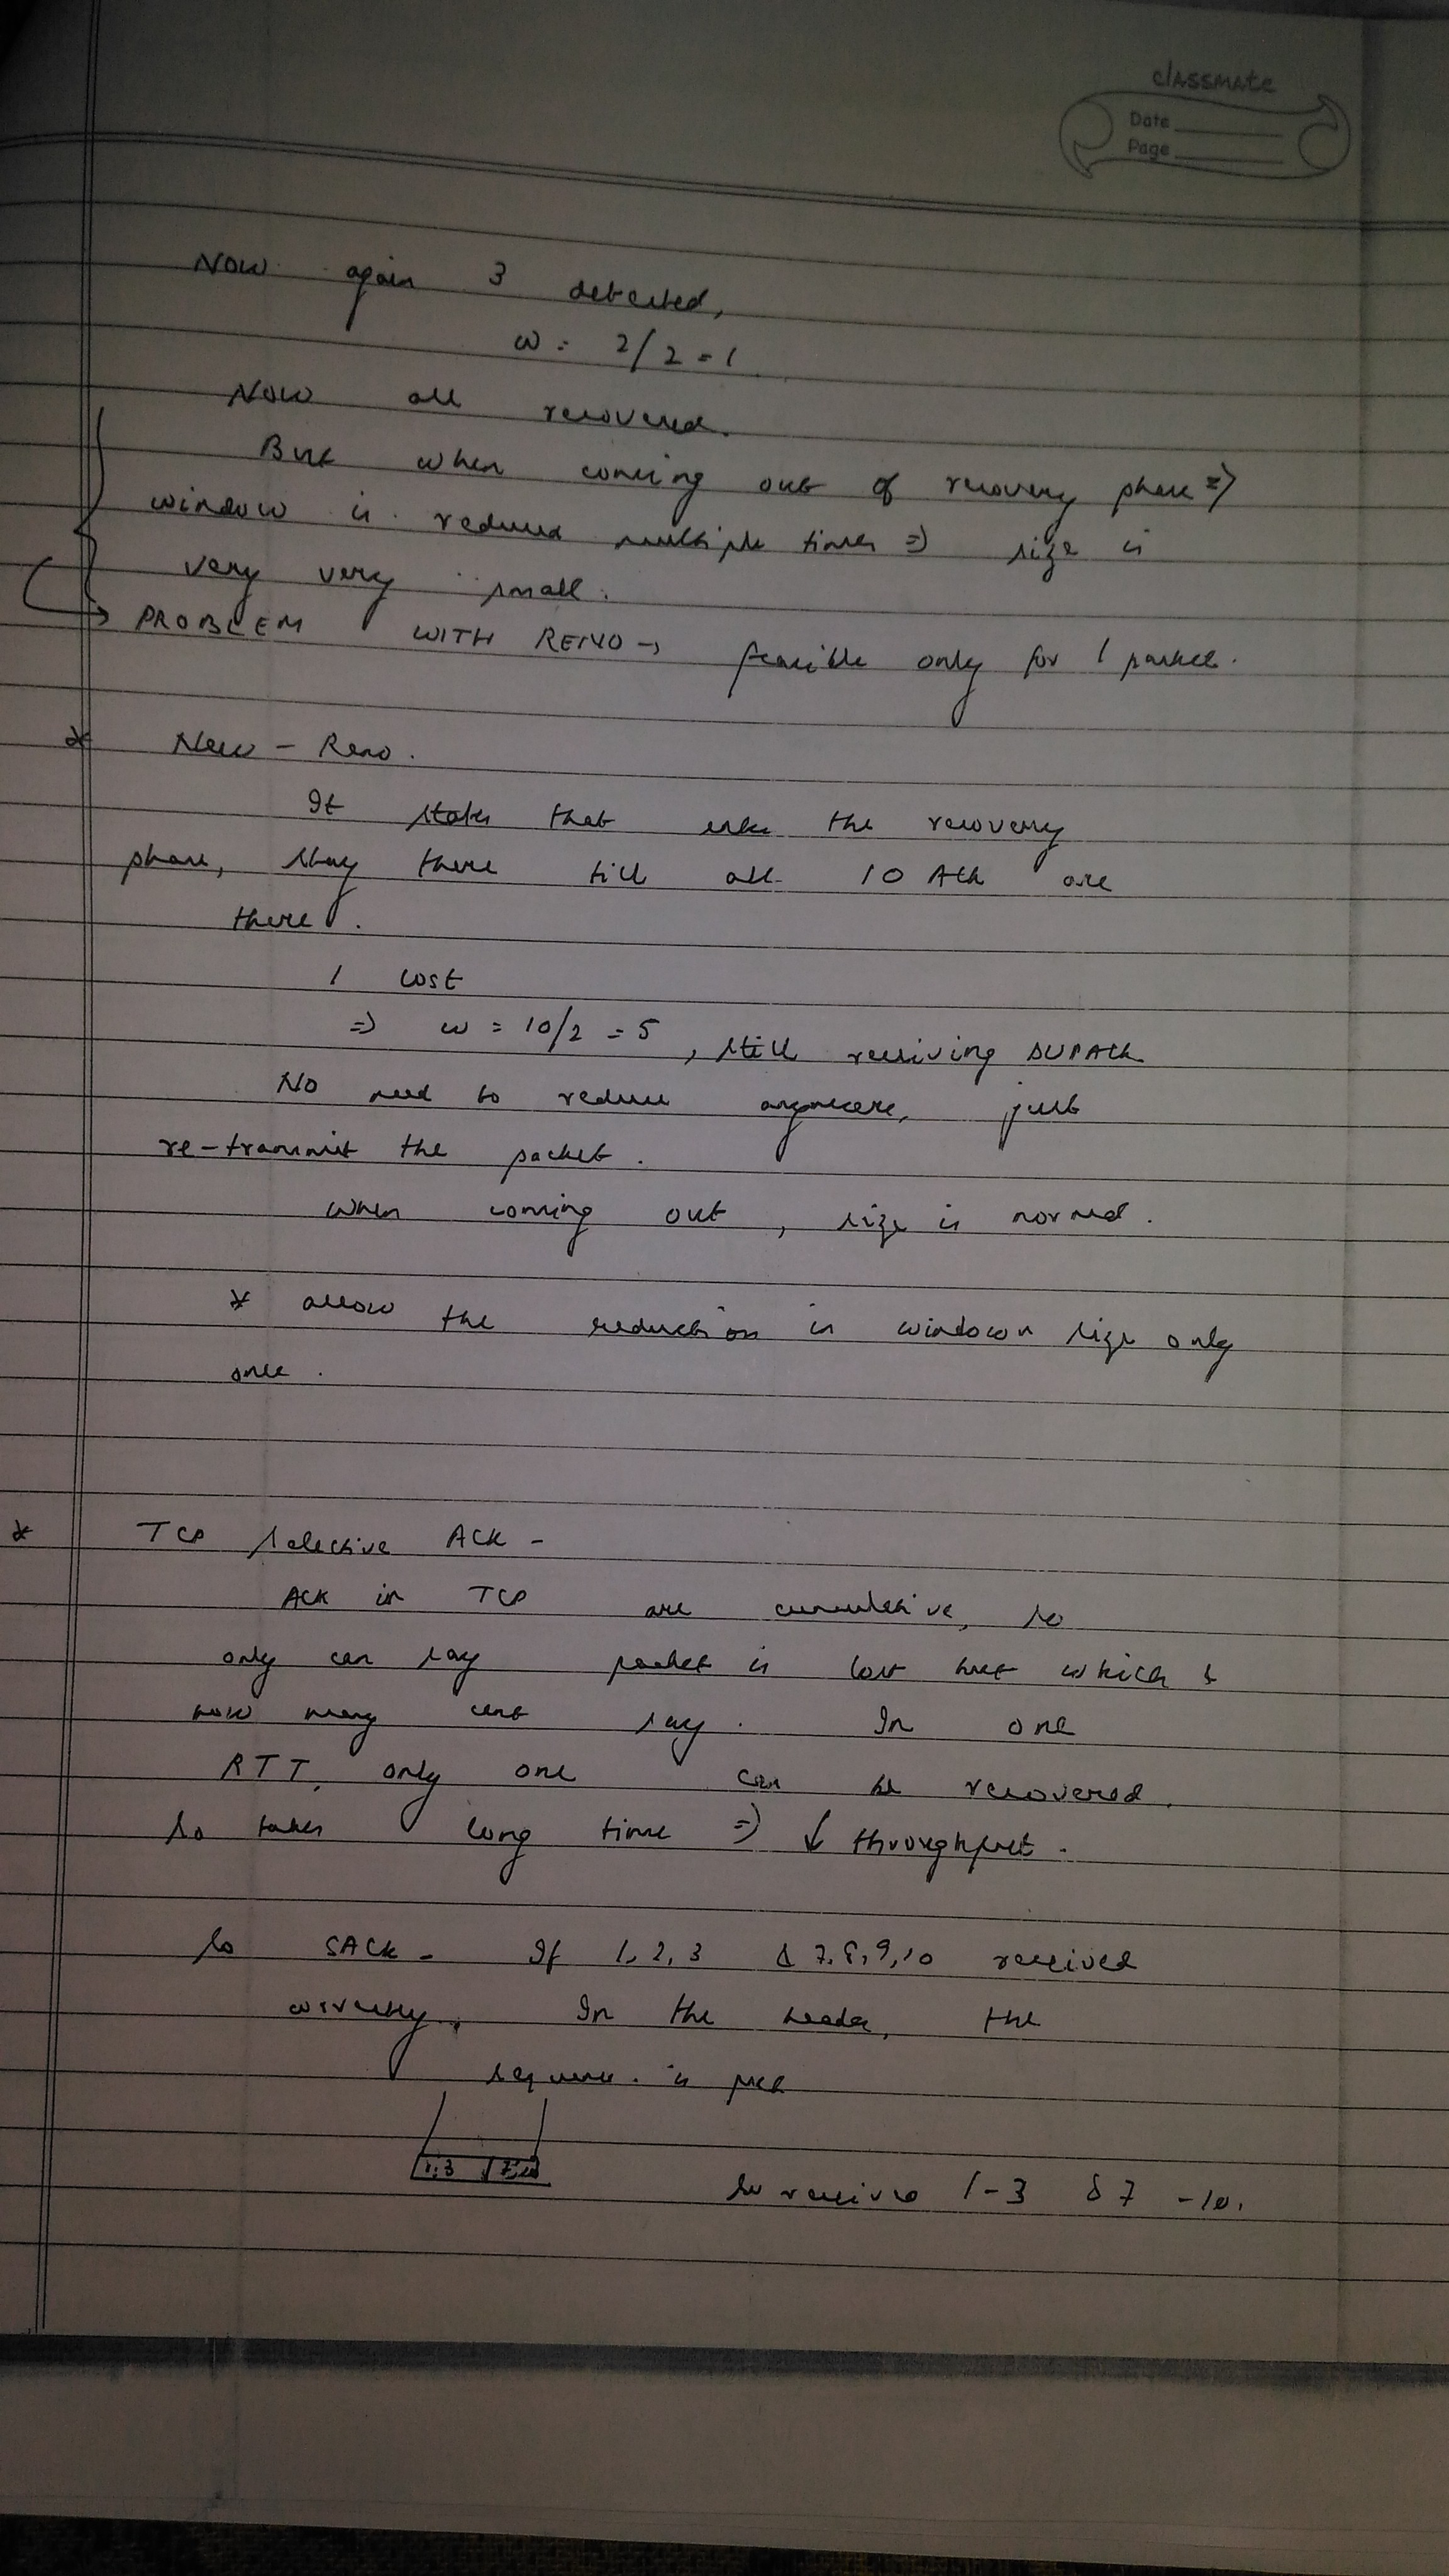 classmate
Date
Page
Now again 3 detected,
w = 2/2 = 1
Now all recovered.
But when coming out of recovery phase ⇒
window is reduced multiple times ⇒ size is
very very small.
PROBLEM WITH RENO → feasible only for 1 packet.
* New - Reno.
It states that enter the recovery
phase, stay there till all 10 ACK are
there.
1 lost
⇒ w = 10/2 = 5, still receiving DUPACK
No need to reduce anymore, just
re-transmit the packet.
when coming out, size is normal.
* allow the reduction in window size only
once.
* TCP Selective ACK -
ACK in TCP are cumulative, so
only can say packet is lost but which &
how many cant say. In one
RTT, only one can be recovered.
So takes long time ⇒ ↓ throughput.
So SACK - If 1, 2, 3 & 7, 8, 9, 10 received
correctly. In the header, the
sequence is put
1,3 7,10
So received 1-3 & 7-10.